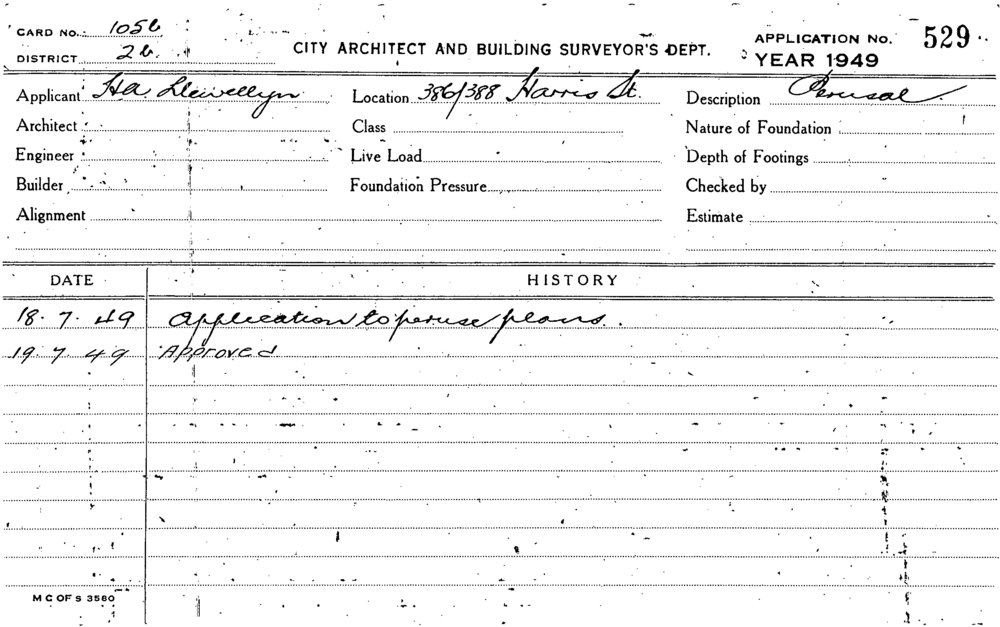 CARD No. 1056
DISTRICT 26
CITY ARCHITECT AND BUILDING SURVEYOR'S DEPT.
APPLICATION No. 529
YEAR 1949
Applicant H.A. Llewellyn Location 386/388 Harris St. Description Perusal.
Architect Class Nature of Foundation
Engineer Live Load Depth of Footings
Builder Foundation Pressure Checked by
Alignment Estimate
DATE HISTORY
18. 7. 49 Application to peruse plans.
19. 7. 49 Approved
M C OF S 3580